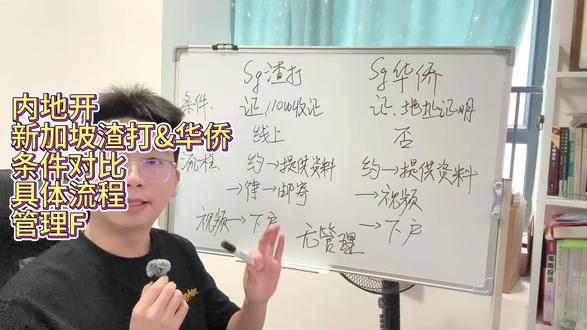 内地开
新加坡渣打&华侨
条件对比
具体流程
管理F
Sg渣打
Sg华侨
条件:
证、11000收证
证、地址证明
线上
否
流程
约→提供资料
约→提供资料
→律→邮寄
→视频
视频→下户
→下户
无管理